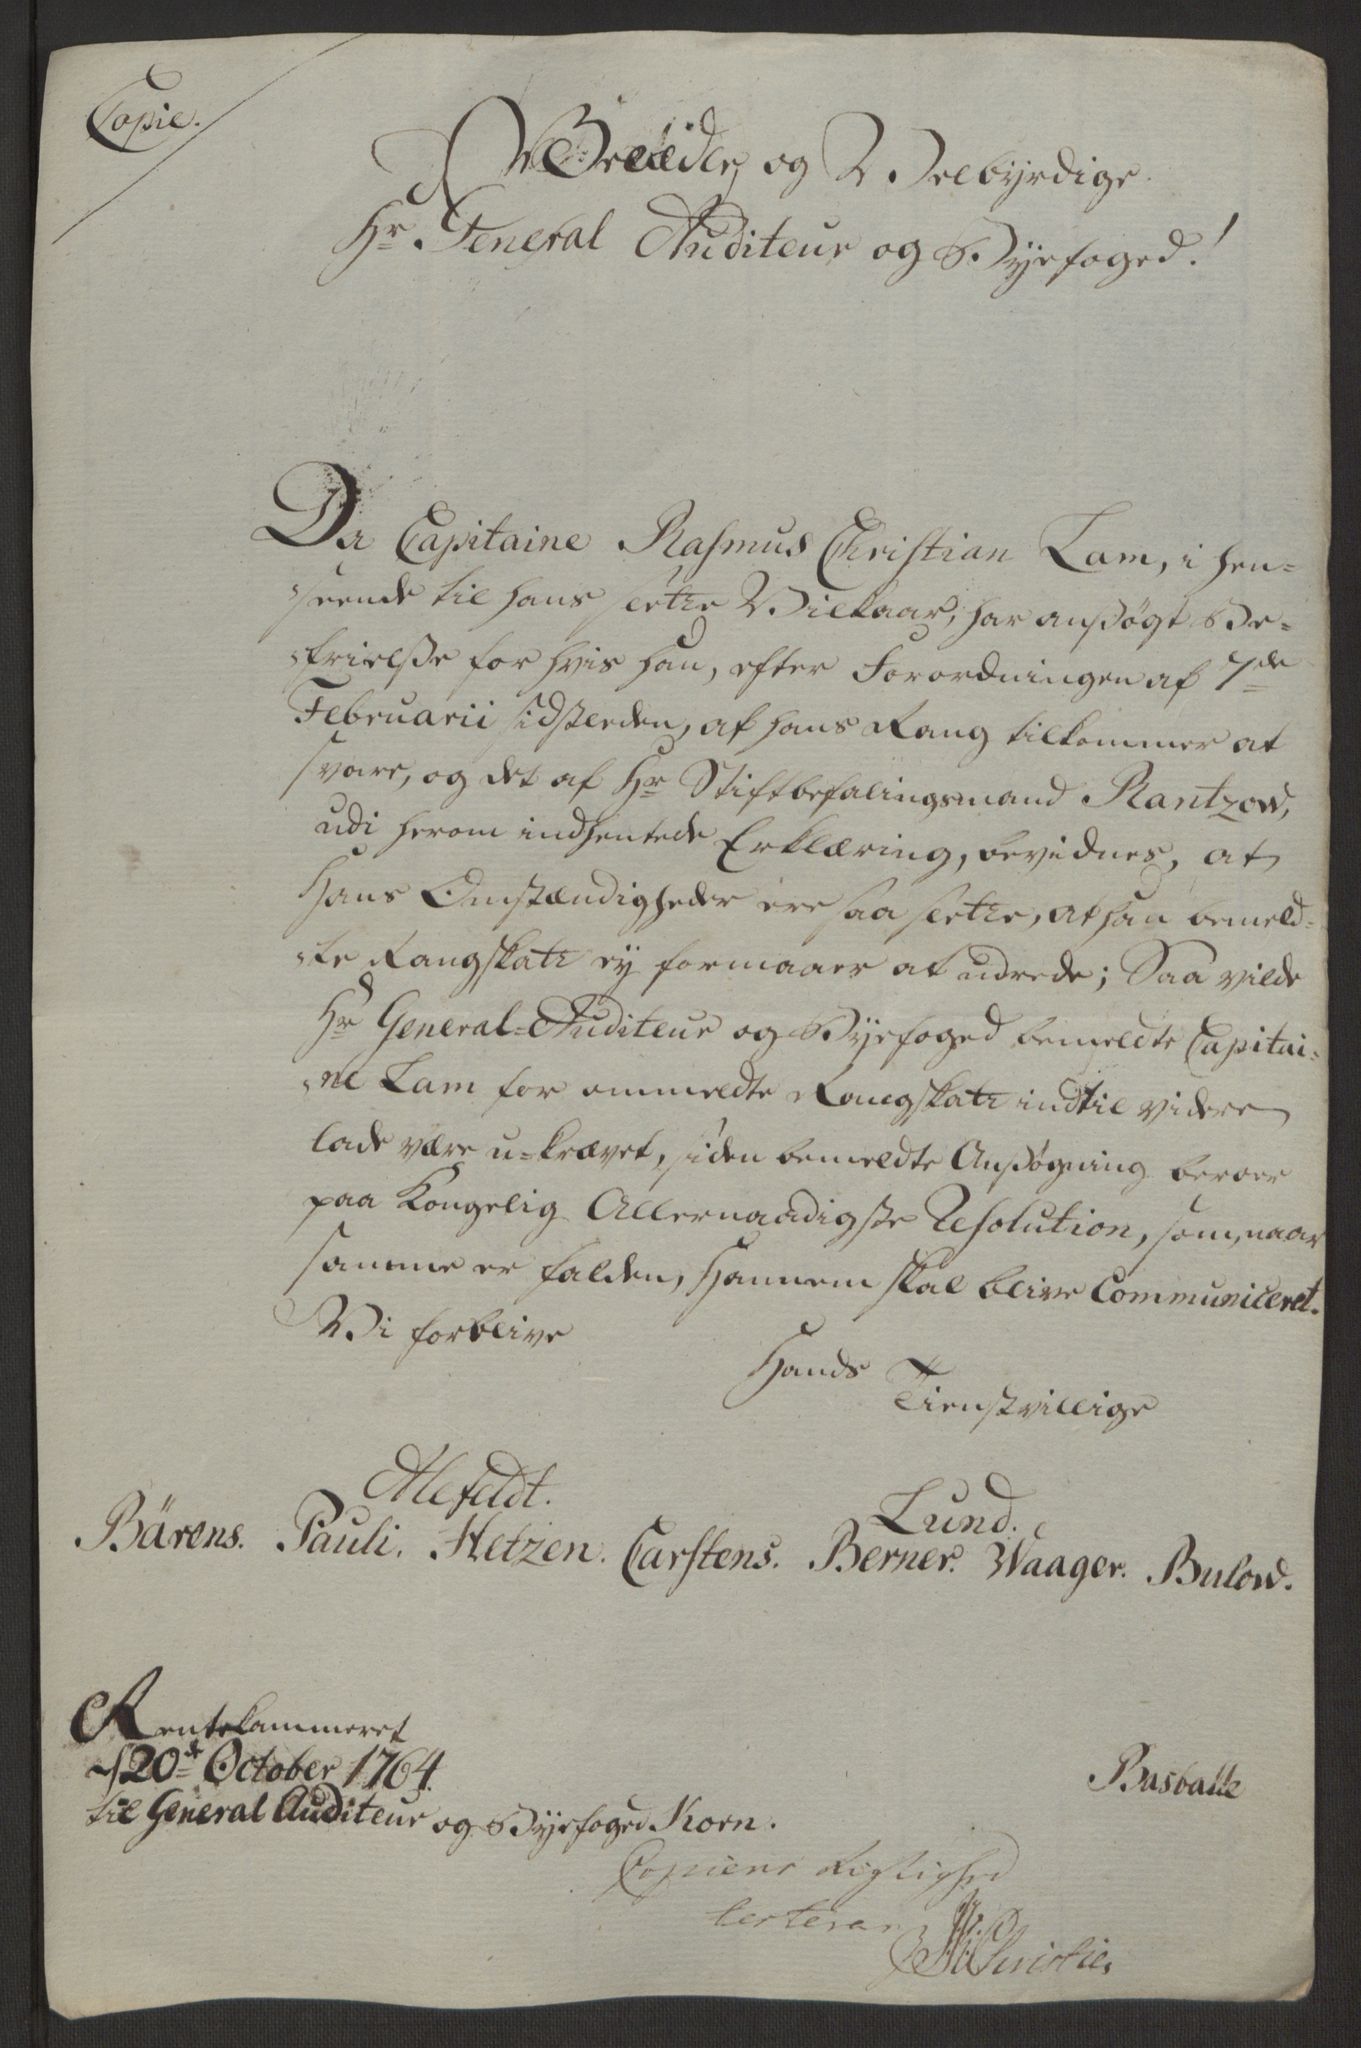 Copie.
Velædle, og Velbyrdige
Hr General Auditeur og Byefoged!
Da Capitaine Rasmus Christian Lam, i hen-
seende til hans slette Vilkaar, har ansøgt Be-
frielse for hvis han, efter Forordningen af 7de
Februarii sidstleden, af hans Rang tilkommer at
svare, og det af Hr Stiftbefalingsmand Rantzow,
udi herom indhentede Erklæring, bevidnes, at
Hans Omstændigheder ere saa slette, at han bemeld-
te Rangskatt ey formaaer at udrede; Saa vilde
Hr General-Auditeur og Byefoged bemeldte Capitai-
ne Lam for ommeldte Rangskatt indtil videre
lade være u-krævet, siden bemeldte Ansøgning beroer
paa Kongelig Allernaadigste Resolution, som, naar
samme er falden, Hannem skal blive Communiceret.
Vi forblive
Hands
Tienstvillige
Alefeldt. Lund.
Bärens. Pauli. Hetzen. Carstens. Berner. Waager. Bulow.
Rentekammeret
d 20de October 1764.
til General Auditeur og Byefoged Korn.
Basballe
Copiens Rigtighed
testerer
Christie